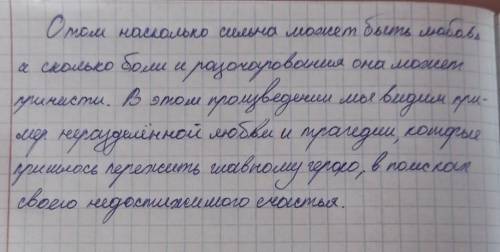 О том насколько сильна может быть любовь
а сколько боли и разочарования она может
принисти. В этом произведении мы видим при-
мер неразделённой любви и трагедии, которые
пришлось пережить главному герою, в поисках
своего недостижимого счастья.